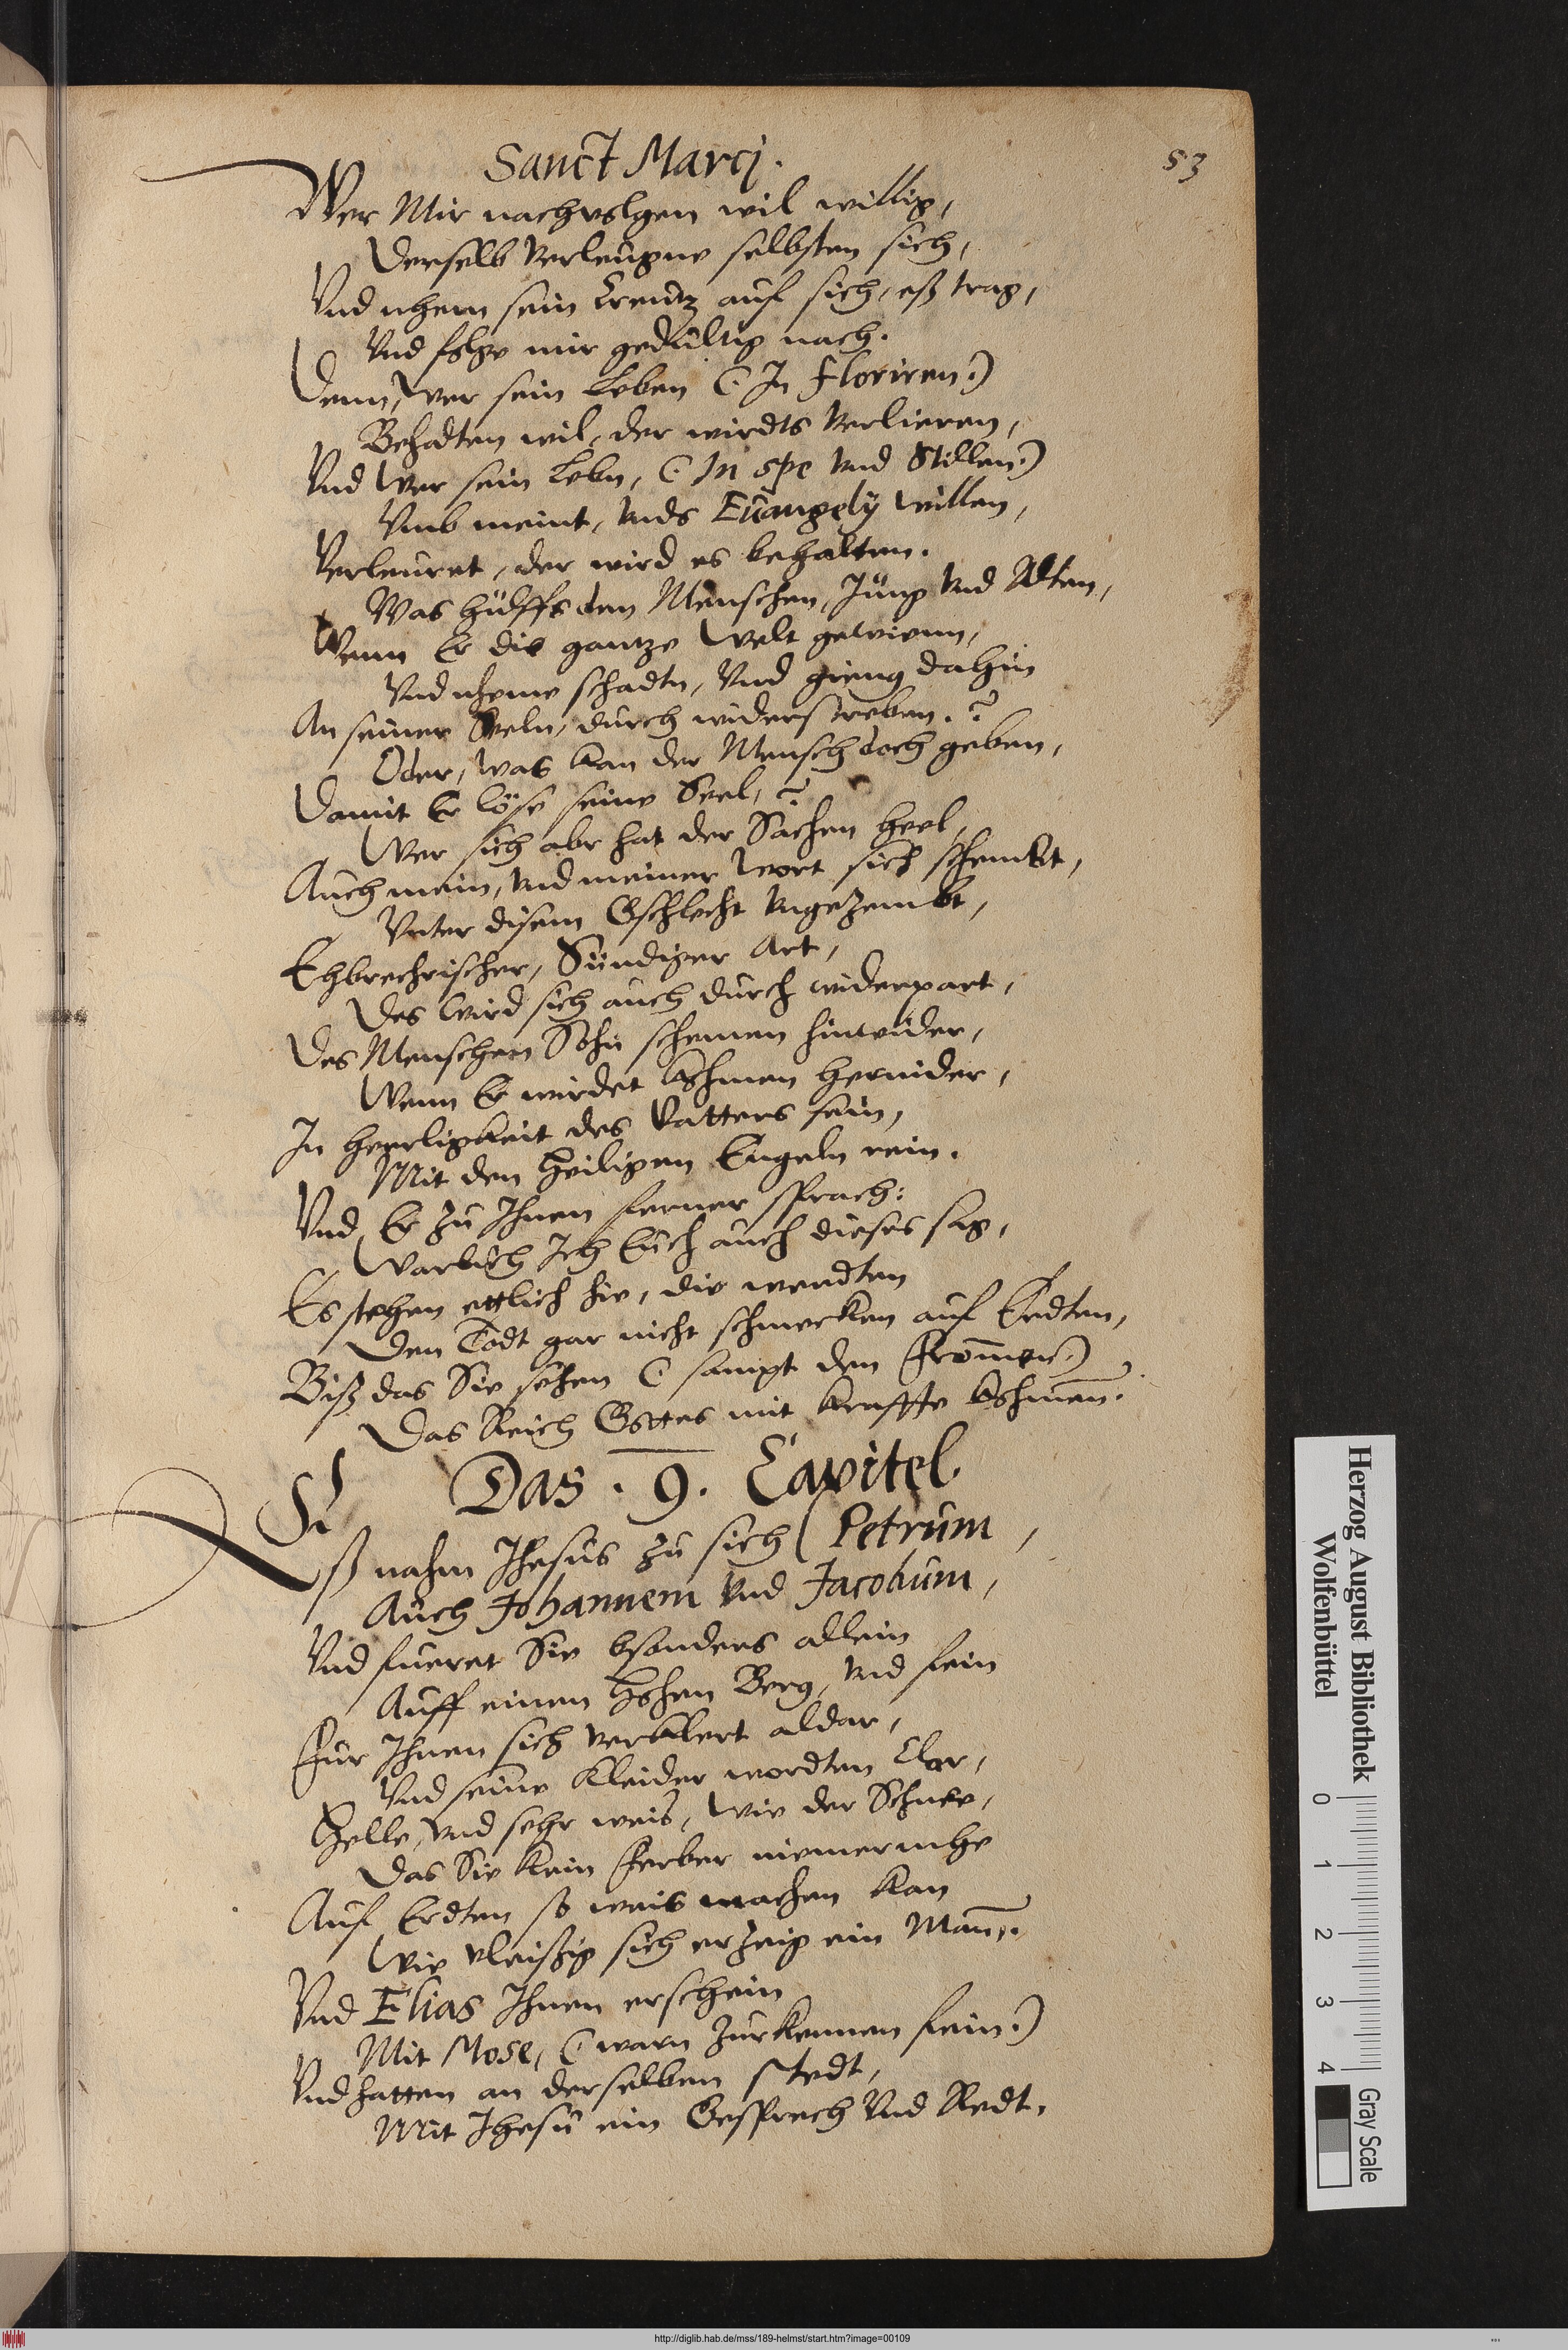 Sanct Marcj.
53
Wer Mir nachvolgen wil willig,
Derselb verleugne selbsten sich,
Vnd nhem sein Creutz auf sich, eß trag,
Vnd folge mir gedultig nach.
Denn, wer sein Leben (: In floriren :)
Behadten wil, der wirdts verlieren,
Vnd wer sein Lebn, (: In spe vnd Stillen :)
Vmb meint, vnds Euangelÿ willen,
Verleuret, der wird es behalten.
Was hülffs den Menschen, Jung vnd Alten,
Wenn Er die gantze Welt gewienn,
Vnd nheme schadtn, Vnd gieng dahin
An seiner Seeln, durch widerstreben.?
Oder, was kan der Mensch doch geben,
Damit Er löse seine Seel,?
Wer sich abr hat der Sachen heel,
Auch mein, vnd meiner wort sich schembt,
Vnter disem Gschlecht vngezembt,
Ehbrechrischer, Sündiger Art,
Des wird sich auch durch widerpart,
Des Menschen Sohn schemen hinwider,
Wenn Er wirdet kohmen hernider,
In herrligkeit des Vatters sein,
Mit den heiligen Engeln rein.
Vnd Er zu Ihnen ferner sprach:
Warlich Ich Euch auch dieses sag,
Es stehen ettlich hie, die werdten
Den Todt gar nicht schmecken auf Erdten,
Biß das Sie sehen (: sampt den frommen :)
Das Reich Gottes mit kraffte kohmen.
Das . 9. Capitel
Eß nahm Jhesus zu sich Petrum,
Auch Johannem vnd Jacobum,
Vnd fueret Sie bsonders allein
Auff einen hohen Berg, vnd fein
Für Ihnen sich verklert aldar,
Vnd seine Kleider wordten Clar,
Helle, vnd sehr weis, wie der Schnee,
Das Sie kein ferber niemermhe
Auf Erdten so weis machen kan
Wie vleißig sich erzeig ein Mann.
Vnd Elias Ihnen erschein
Mit Mose, (: warn zurkennen fein :)
Vnd hatten an derselben Stedt,
Mit Jhesu ein Gesprech vnd Redt.
Herzog August Bibliothek
Wolfenbüttel
0 1 2 3 4
Gray Scale
http://diglib.hab.de/mss/189-helmst/start.htm?image=00109